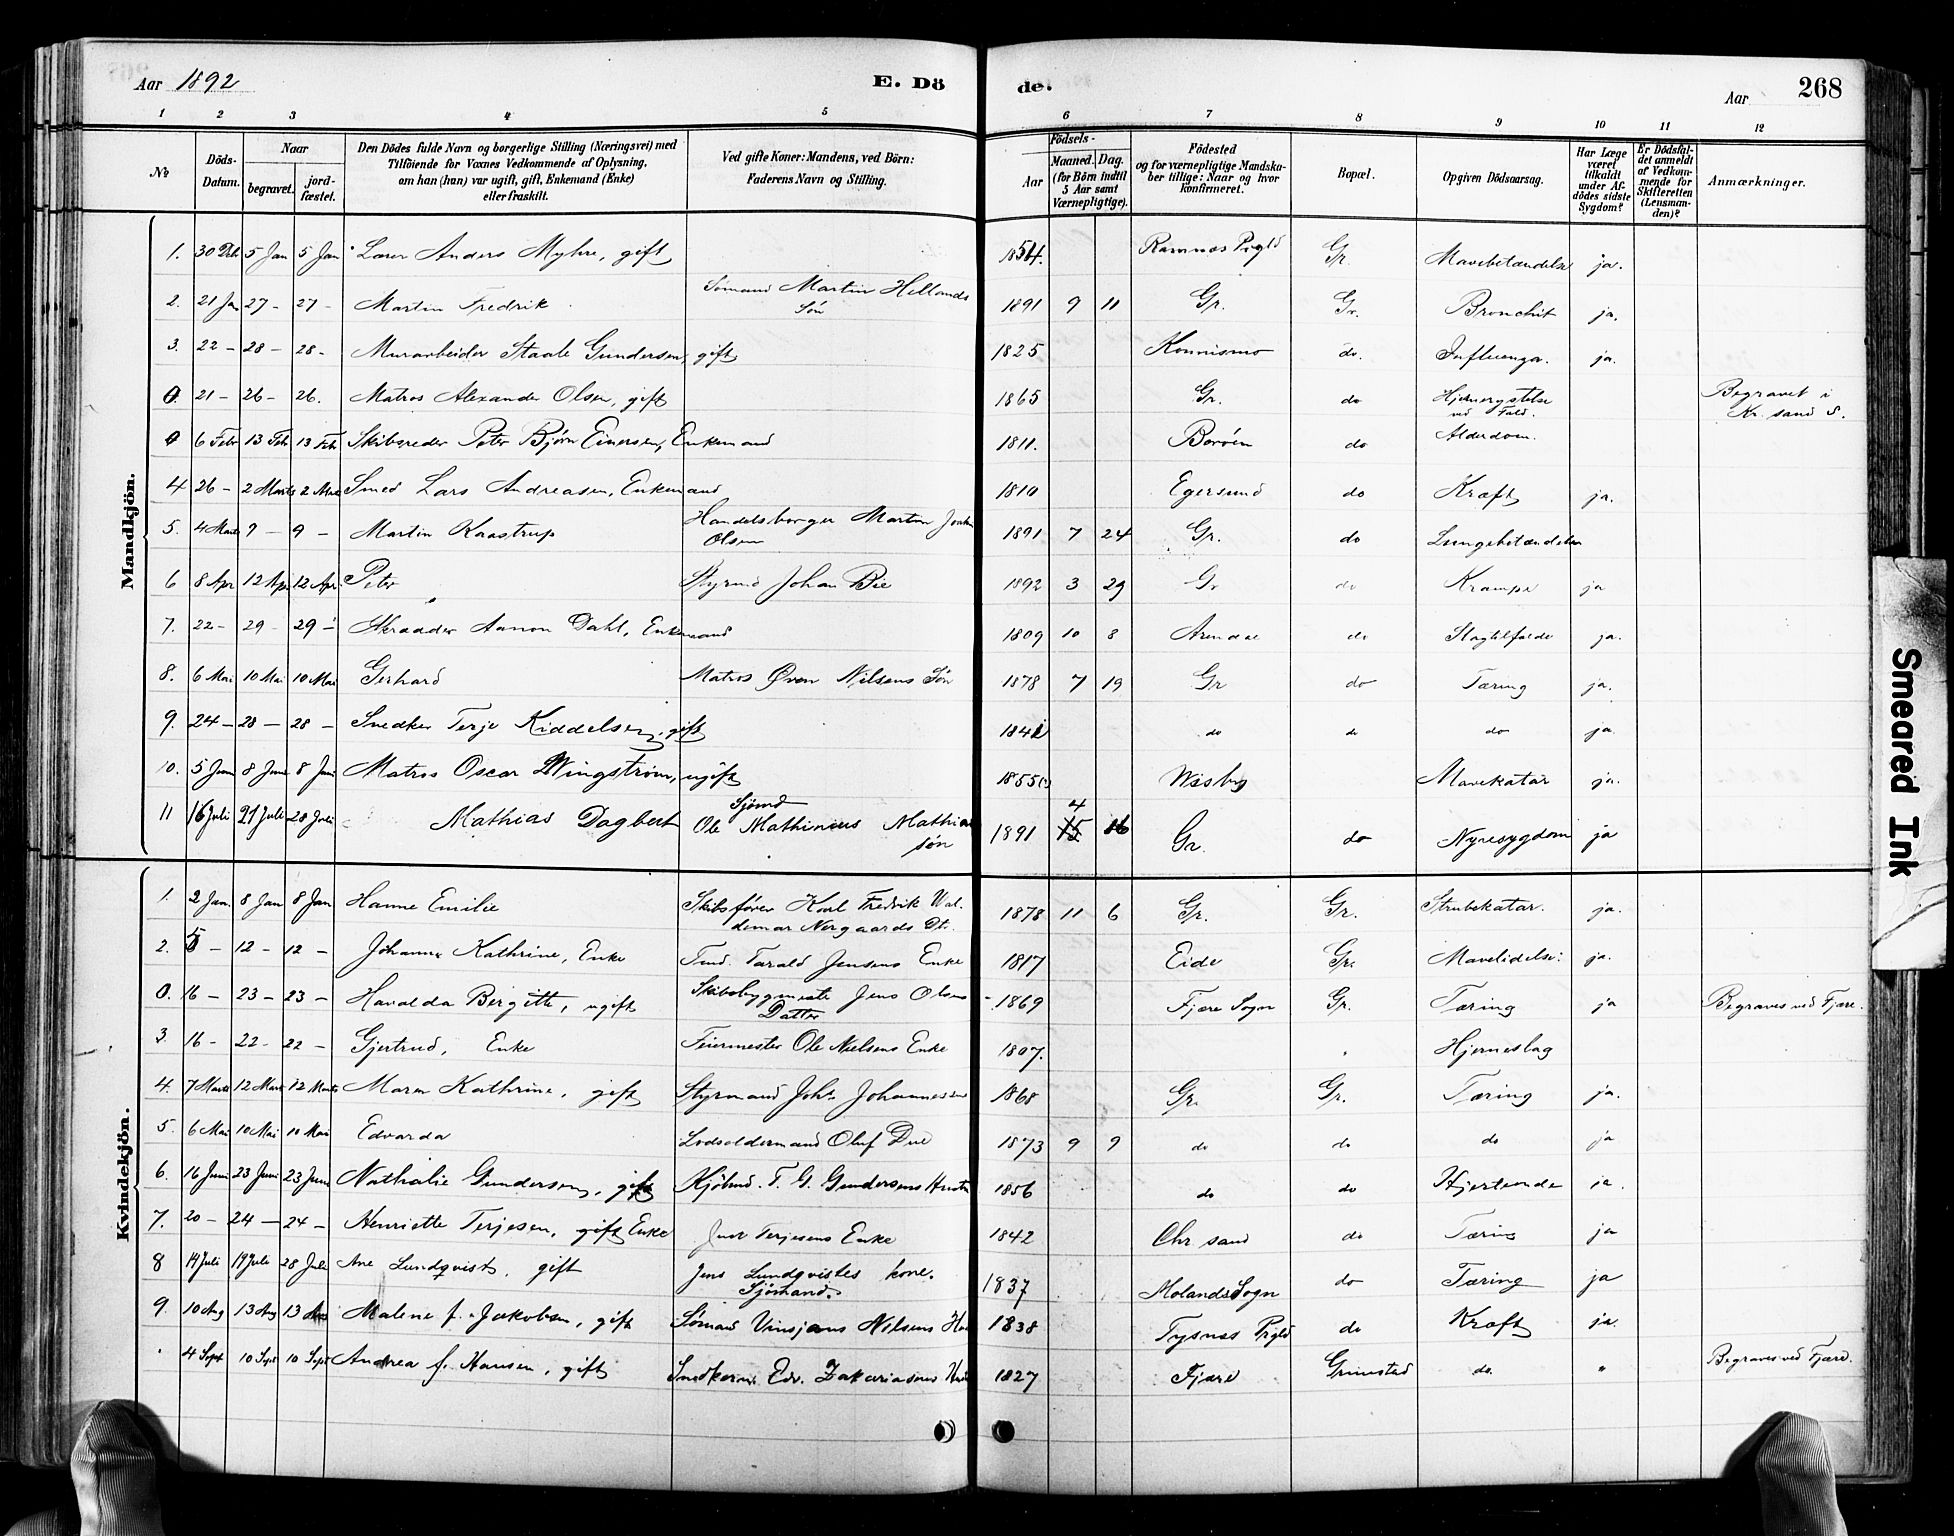 Aar 1892 E. Dö de. Aar 268
1 2 3 4 5 6 7 8 9 10 11 12
No
Döds-Datum.
Naar
begravet.
jord-fæstet.
Den Dödes fulde Navn og borgerlige Stilling (Næringsvei) med
Tilföiende for Voxnes Vedkommende af Oplysning,
om han (hun) var ugift, gift, Enkemand (Enke)
eller fraskilt.
Ved gifte Koner: Mandens, ved Börn:
Faderens Navn og Stilling.
Födsels-
Aar Maaned. Dag.
(for Börn indtil
5 Aar samt
Værnepligtige).
Födested
og for værnepligtige Mandska-
ber tillige: Naar og hvor
konfirmeret.
Bopæl.
Opgiven Dödsaarsag.
Har Læge
været
tilkaldt
under Af-
dödes sidste
Sygdom?
Er Dödsfal-
det anmeldt
af Vedkom-
mende for
Skifteretten
(Lensman-
den)?
Anmærkninger.
Mandkjön.
1. 30 Dcb. 5 Jan 5 Jan Lærer Anders Myhre, gift 1854. Ramnæs Prgld Gr. Mavebetændelse ja.
2. 21 Jan 27 - 27 - Martin Fredrik Sömand Martin Hellands Sön 1891 9 11 Gr. Gr. Bronchit ja.
3. 22 - 28 - 28 - Murarbeider Staale Gundersen, gift 1825 Konnismo do. Influenza. ja.
0. 21 - 26 - 26. Matros Alexander Olsen, gift 1865 Gr. do Hjernerystelse ved Fald. Begravet i Kr.sand S.
0 6 Febr 13 Feb. 13 Feb. Skibsreder Peter Bjørn Einersen, Enkemand 1811. Borøen do Alderdom.
4 26 - 2 Marts 2 Mar Smed Lars Andreasen, Enkemand 1810 Egersund do Kræft ja.
5. 4 Marts 9 - 9 - Martin Kaastrup Handelsborger Martin Olsen 1891 7 24 Gr. do Lungebetændelse
6 8 Apr 12 Apr 12 Apr Peter Styrmd Johan Bie 1892 3 29 Gr do Krampe ja
7. 22 - 29 - 29 - Skrædder Aanon Dahl, Enkemand 1809 10 8 Arendal do Slagtilfælde ja.
8. 6 Mai 10 Mai 10 Mai Gerhard Matros Øven Nilsens Sön 1878 7 19 Gr do Tæring ja.
9. 24 - 28 - 28 - Snedker Terje Kiddelsen, gift 1841 do do do ja.
10. 5 Juni 8 Juni 8 Juni Matros Oscar Wingstrøm, ugift 1855(?) Wisby Mavekatar ja.
11 16 Juli 21 Juli 28 Juli Mathias Dagbert Sjömd Ole Mathinius Mathias sön 1891 4 16 Gr. do Nyresygdom ja
Kvindekjön.
1. 2 Jan. 8 Jan 8 Jan Hanne Emilie Skibsfører Karl Fredrik Wal-demar Nørgaards Dt. 1878 11 6 Gr. Gr. Strubekatar. ja.
2. 5 - 12 - 12 - Johanne Kathrine, Enke Tmd. Tarald Jensens Enke 1817 Eide Gr. Mavelidelse. ja.
0. 16 - 23 - 23 - Haralda Bergitte, ugift Skibsbygmester Jens Olsens Datter 1869 Fjære Sogn Gr. Tæring ja Begraves ved Fjære.
3. 16 - 22 - 22 - Gjertrud, Enke Feiermester Ole Nielsens Enke 1807. Hjerneslag
4. 7 Marts 12 Mart 12 Marts Maren Kathrine, gift Styrmand Johs Johannessen 1868 Gr. Gr. Tæring ja.
5. 6 Mai 10 Mai 10 Mai Edvarda Lodsoldermand Oluf Due 1873 9 9 do do do ja
6. 16 Juni 23 Juni 23 Juni Nathalie Gundersen, gift Kjöbmd. T. G. Gundersens Hustru 1856 do do Hjerteonde ja.
7. 20 - 24 - 24 - Henriette Terjesen, gift Enke Terjesens Enke 1842 Chr sand do Tæring ja
8 14 Juli 19 Juli 28 Juli Ane Lundqvist, gift Jens Lundqvistes kone. Sjömand. 1837 Molands Sogn do Tæring ja
9. 10 Aug 13 Aug 13 Aug Malene f. Jakobsen, gift Sömand Vinsjans Nilsens 1838 Tysnæs Prgld do Kræft ja.
4 Sept 10 Sept 10 Sept Andrea f. Hansen, gift Snedkerm. Edv. Zakariasens 1827 Fjære Grimstad do. " Begraves ved Fjære.
Smeared Ink